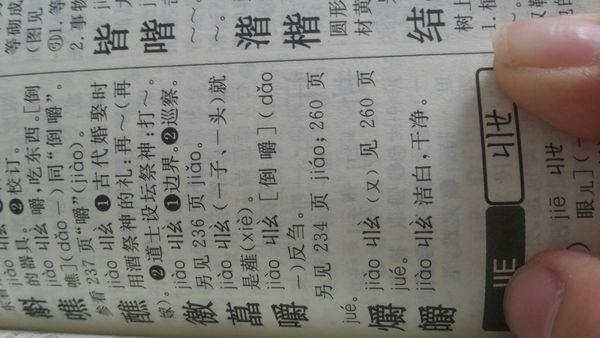 的器具。❷校订。
斠
噍 jiào ㄐㄧㄠˋ 嚼,吃东西。[倒
噍](dǎo—)同“倒嚼”(jiào)。
参看 237 页“嚼”(jiáo)。
醮 jiào ㄐㄧㄠˋ ❶古代婚娶时
用酒祭神的礼:再~(再
嫁)。❷道士设坛祭神:打~。
徼 jiào ㄐㄧㄠˋ ❶边界。❷巡察。
另见 236 页 jiǎo。
藠 jiào ㄐㄧㄠˋ (—子、—头)就
是薤(xiè)。
嚼 jiào ㄐㄧㄠˋ [倒嚼](dǎo
—)反刍。
另见 234 页 jiáo;260 页
jué。
爝 jiào ㄐㄧㄠˋ (又)见 260 页
jué。
皭 jiào ㄐㄧㄠˋ 洁白,干净。
JIE ㄐㄧㄝ
jiē ㄐㄧㄝ
眼儿](一
等砌成
(图见
2. 事物
皆
喈
~~。
湝
~~。
楷
圆形
材黄
结
树上